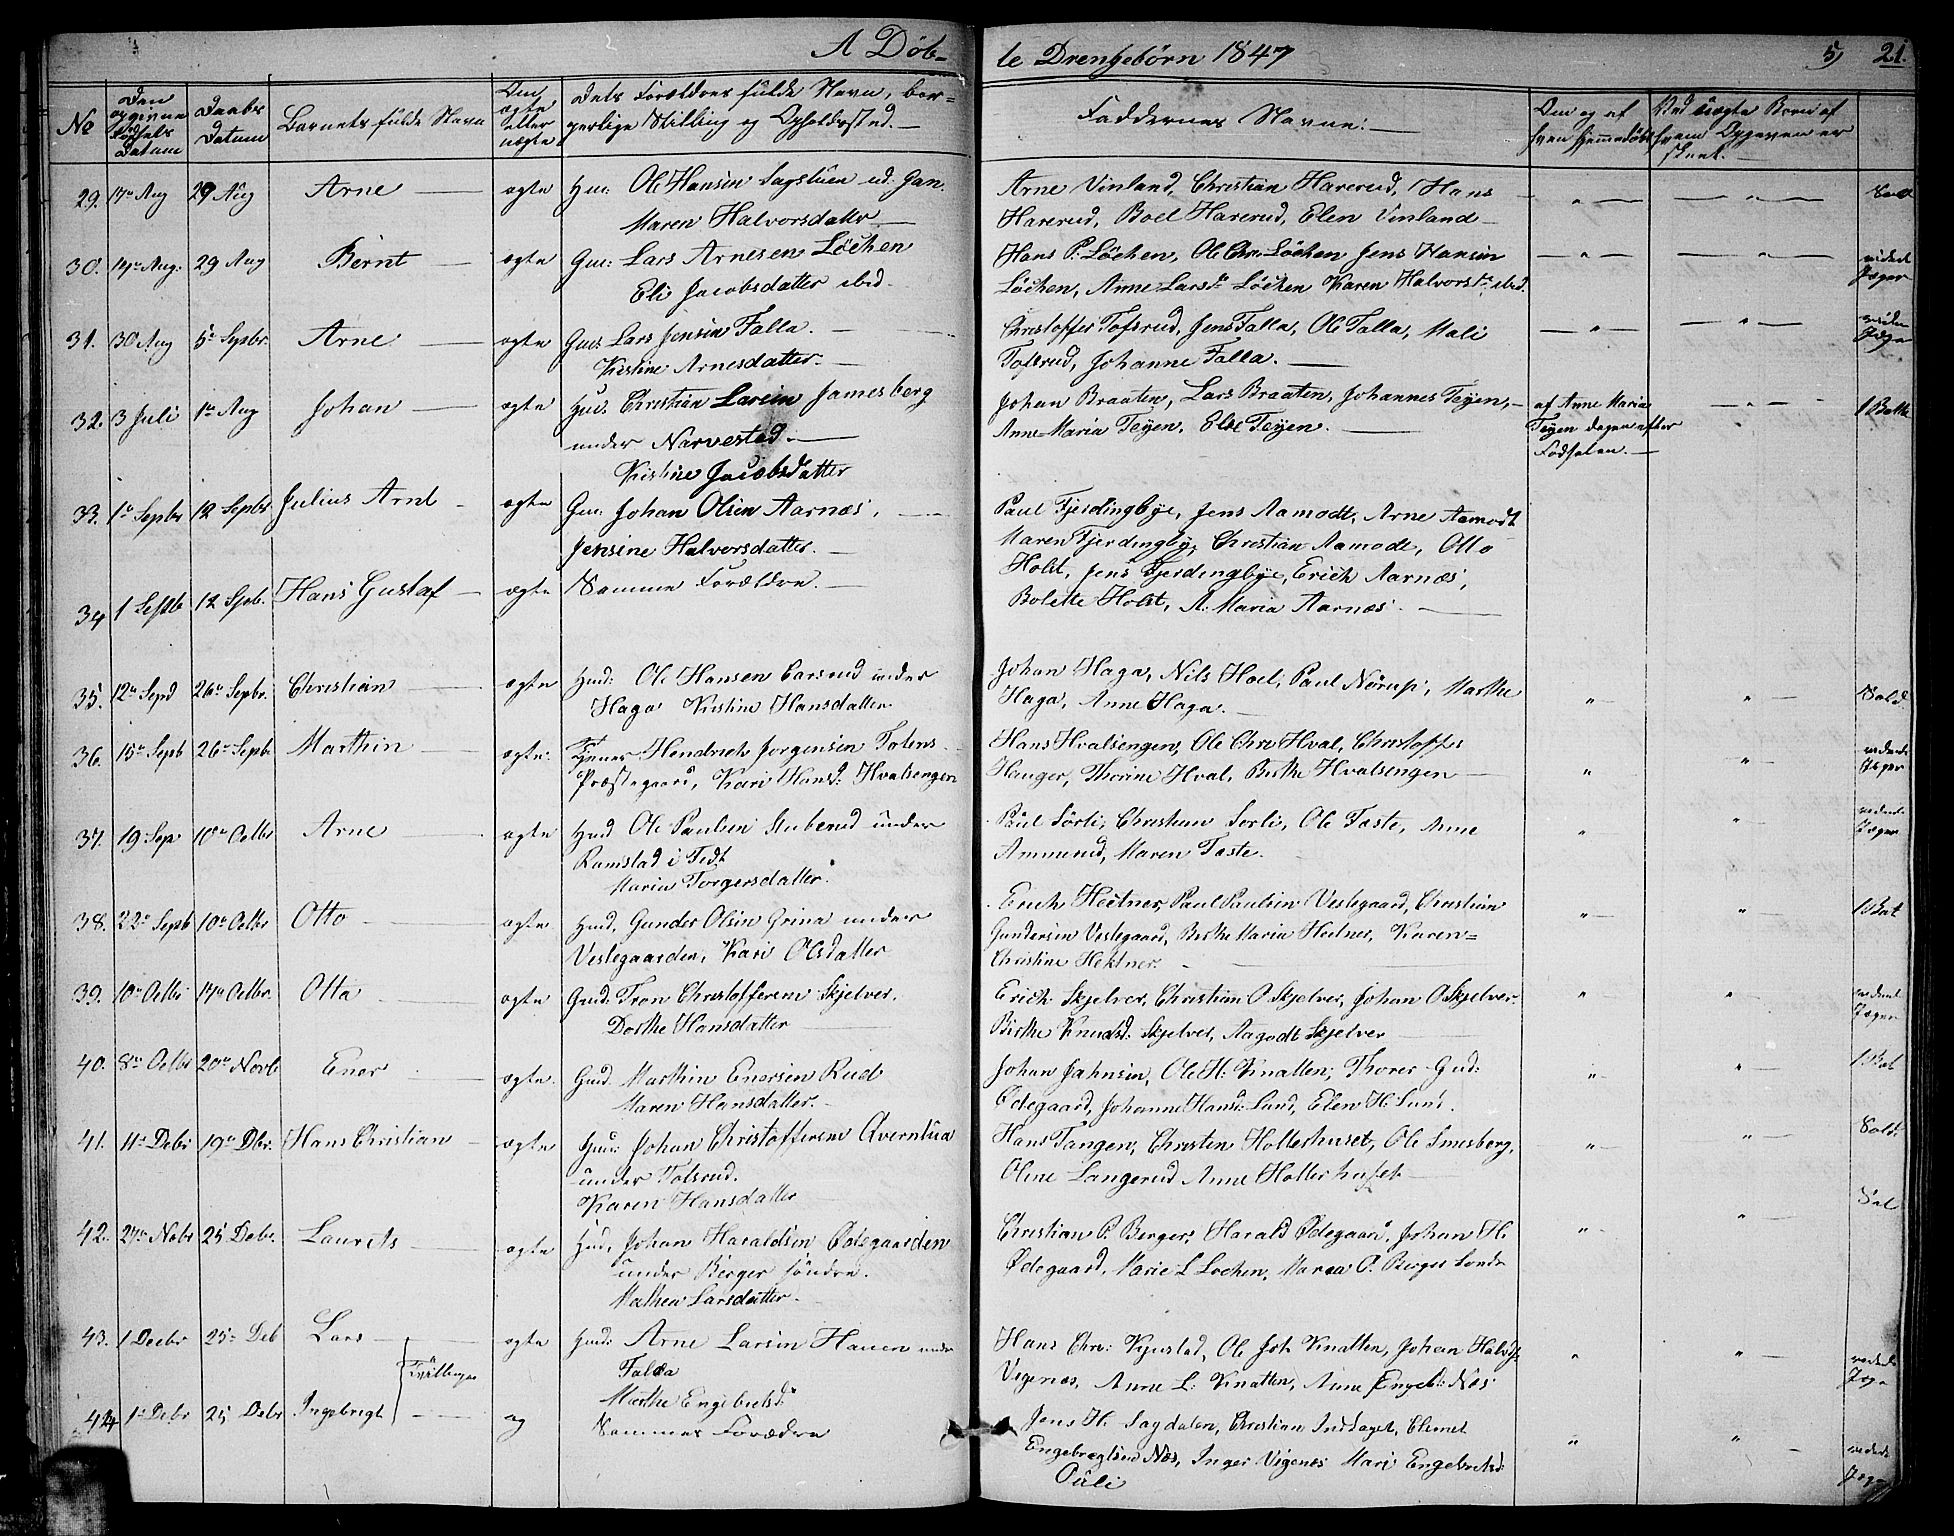 A Døb-
te Drengebørn 1847
5, 21.
No
Den opgivne Fødsels Datum
Daabs Datum
Barnets fulde Navn
Om ægte eller uægte
Dets Forældres fulde Navn, bor-
gerlige Stilling og Opholdssted. —
Faddernes Navne: —
Om og af hvem Hjemmedøbt
Ved uægte Børn af hvem Opgaven er skeet. —
29. 17de Aug 29 Aug Arne — ægte Huu: Ole Hansen Sagstuen ud: Gan.
Maren Halvorsdatter —
Arne Vinland, Christian Harerud, Hans
Harerud, Boel Harerud, Elen Vinland —
Sold
30. 19de Aug. 29 Aug Bernt — ægte Gmd: Lars Arnesen Löchen
Eli Jacobsdatter ibid.
Hans P. Löchen, Ole Chr. Löchen Jens Hansen
Löchen, Anne Larsdr Löchen Karen Halvorsdr ibid.
vidend Jæger
31. 30 Aug 5te Sepbr. Arne — ægte Gmd. Lars Jensen Falla. —
Kirstine Arnesdatter. —
Christoffer Tofsrud, Jens Falla, Ole Falla, Mali
Tofsrud, Johanne Falla. —
32. 3 Juli 1te Aug Johan — ægte Hus: Christian Larsen Jamesberg
under Narvestad. —
Kirstine Jacobsdatter
Johan Braaten, Lars Braaten, Johannes Teyen, —
Anne Maria Teyen, Else Teyen. —
af Anne Maria
Teyen dagen efter
Fødselen. —
33. 1te Sepbr 12 Sepbr Julius Arnt — ægte Gm: Johan Olsen Aarnæs. —
Jensine Halvorsdatter. —
Paul Fjerdingbye, Jens Aamodt, Arne Aamodt
Maren Fjerdingby, Christian Aamodt, Otto
34 1 Septb 12 Spb. Hans Gustaf — ægte Samme Forældre. —
Holst, Jens Fjerdingbye, Erich Aarnæs,
Bolette Holst, A. Maria Aarnæs. —
35. 12te Sepd 26de Sepbr. Christian — ægte Hmd: Ole Hansen Carsrud under
Haga Kirstine Hansdatter
Johan Haga, Nils Hoel, Paul Nørup, Marthe
Haga, Anne Haga. —
Sold
36. 15de Sepb 26de Sepb Marthin — ægte: Tjener Hendrich Jørgensen Totens
Præstegaard, Kari Hansd: Hvalsengen
Hans Hvalsengen, Ole Chr Hval, Christoffer
Hauger, Thorine Hval, Berthe Hvalsengen —
37. 19 Sep 10de Octbr Arne — ægte Hmd Ole Paulsen Stuberud under
Ramstad i Fedt
Maria Torgersdatter.
Paul Sörli, Christian Sorli, Ole Taste, Anne
Ammerud, Maren Taste.
38. 22de Sepb 10de Octbr Otto — ægte Hmd, Gunder Olsen Grina under
Veslegaarden, Kari Olsdatter
Erich Hectner, Paul Paulsen Veslegaard, Christian
Gundersen Veslegaard, Berthe Maria Hectner, Karen=
Christine Hektner. —
39. 10de Octbr 17de Octbr. Otta — ægte Gmd: Tron Christoffersen Skjelver.
Dorthe Hansdatter —
Erich Skjelver, Christian O Skjelver, Johan O Skjelver
Birthe Knudsd: Skjelver, Aagodt Skjelver —
40. 8de Octbr 20de Novb Ener — ægte. Gmd. Marthin Enersen Rud
Maren Hansdatter. —
Johan Jahnsen, Ole H: Knatten, Thorer Gud:
Ødegaard, Johanne Hansd: Lund, Elen H. Lund.
41. 11te Debr 19de Dbr. Hans Christian — ægte Hmd: Johan Christoffersen Qverntua
under Tolsrud.
Karen Hansdatter —
Hans Tangen, Christen Holterhuset, Ole Smesberg,
Oline Langerud Anne Holterhuset —
Sold
42. 27de Nobr 25 Debr. Laurits — ægte Hmd, Johan Haraldsen Ødegaarden
under Berger söndre.
Mathea Larsdatter. —
Christian P. Berger, Harald Ødegaard, Johan H.
Ødegaard, Marie L Lochen, Marea P. Berger sondr
43. 1 Decbr 25de Deb Lars — ægte Hmd: Arne Larsen Hauen under
Falda
Marthe Engebretsd:
Tvillinger
Hans Chr: Kjustad, Ole Joh Knatten, Johan Halvdr
Vigenæs, Anne L: Knatten, Anne Engeb: Næs
44 1te Debr 25 Debr Ingebregt — og Sammes Forældre
Jens H. Sagdalen, Christian Indlaget, Clemet
Engebregtsen Næs, Inger Vigenæs Mari Engebretsd:
Puli